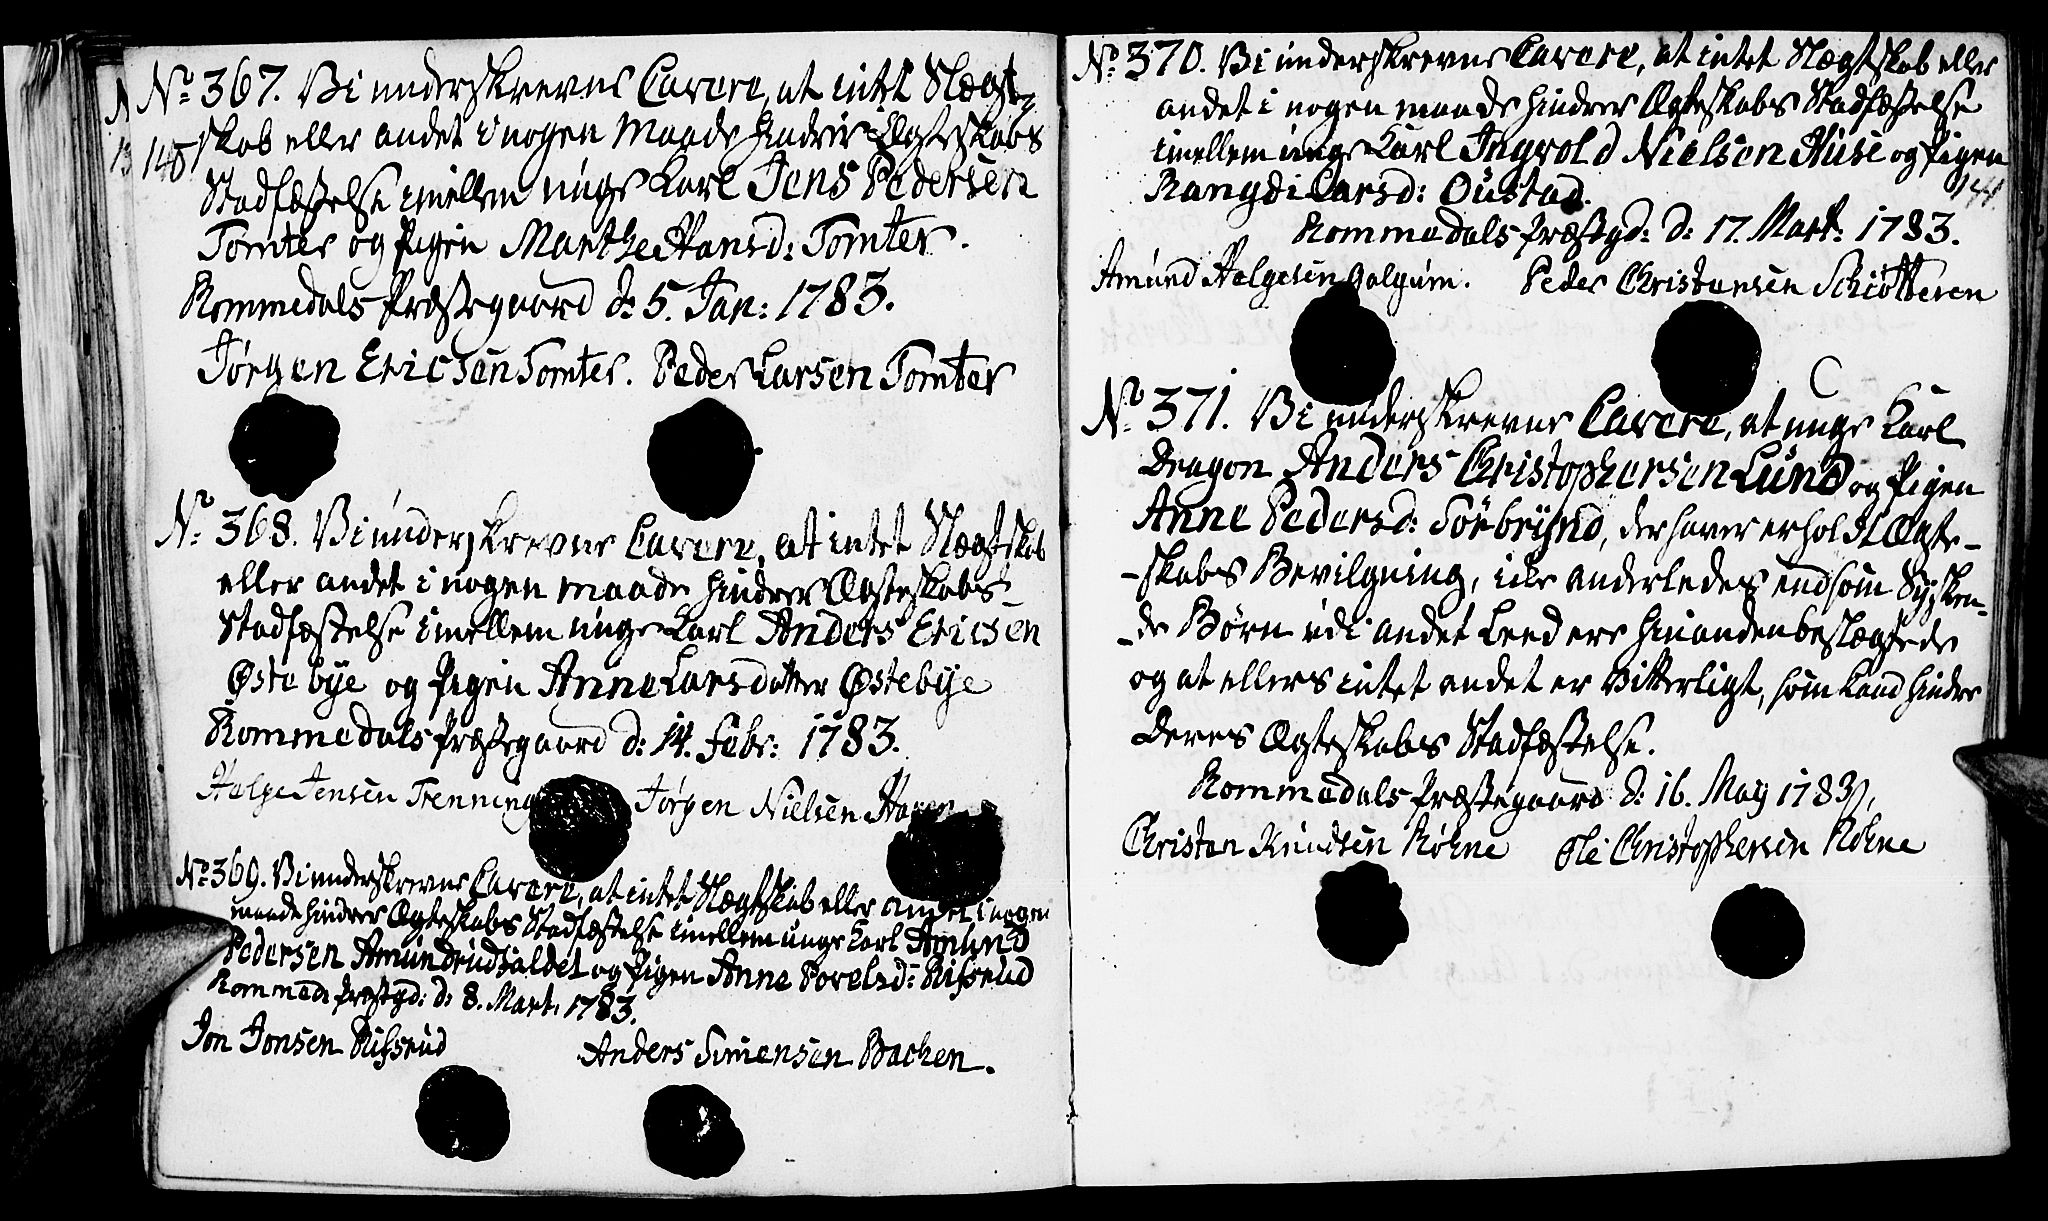 140
No 367. Vi underskrevne Cavere, at intet Slægt-
skab eller andet i nogen Maade hindrer Ægteskabs
Stadfæstelse imellem unge Karl Jens Pedersen
Tomter og Pigen Marthe Hansd: Tomter.
Rommedals Præstegaard d: 5. Jan: 1783.
Jørgen Ericsen Tomter. Peder Larsen Tomter
No 368. Vi underskrevne Cavere, at intet Slægtskab
eller andet i nogen maade hindrer Ægteskabs-
Stadfæstelse imellem unge Karl Anders Ericsen
Østebÿe og Pigen Anne Larsdatter Østebÿe
Rommedals Præstegaard d: 14. Febr: 1783.
Helge Jensen Jørgen Nielsen
No 369. Vi underskrevne Cavere, at intet Slægtskab eller andet i nogen
maade hindrer Ægteskabs Stadfæstelse imellem unge Karl Amund
Pedersen Amundrudsaldet og Pigen Anne Povelsd: Risserud
Rommed: Præstgd: d: 8. Mart. 1783.
Jon Jonsen Risserud Anders Simensen Bachen.
141
No 370. Vi underskrevne Cavere, at intet Slægtskab eller
andet i nogen maade hindrer Ægteskabs Stadfæstelse
imellem unge Karl Ingvold Nielsen Huse og Pigen
Rangdi Larsd: Oustad.
Rommedals Præstgd: d: 17. Mart: 1783.
Amund Helgesen Gølgum. Peder Christansen Schiøtteren
No 371. Vi underskrevne Cavere, at unge Karl
Dragon Anders Christophersen Lund og Pigen
Anne Pedersd: Sörbrÿnd, der haver erholdt Ægte-
-skabs Bevilgning, icke anderledes end som Sydsken-
-de Børn udi andet Leed ere hinanden beslægtede
og at ellers intet andet er Vitterligt, som kand hindre
deres Ægteskabs Stadfæstelse.
Rommedals Præstegaard d: 16. May 1783.
Christen Knudsen Røhne Ole Christophersen Røhne